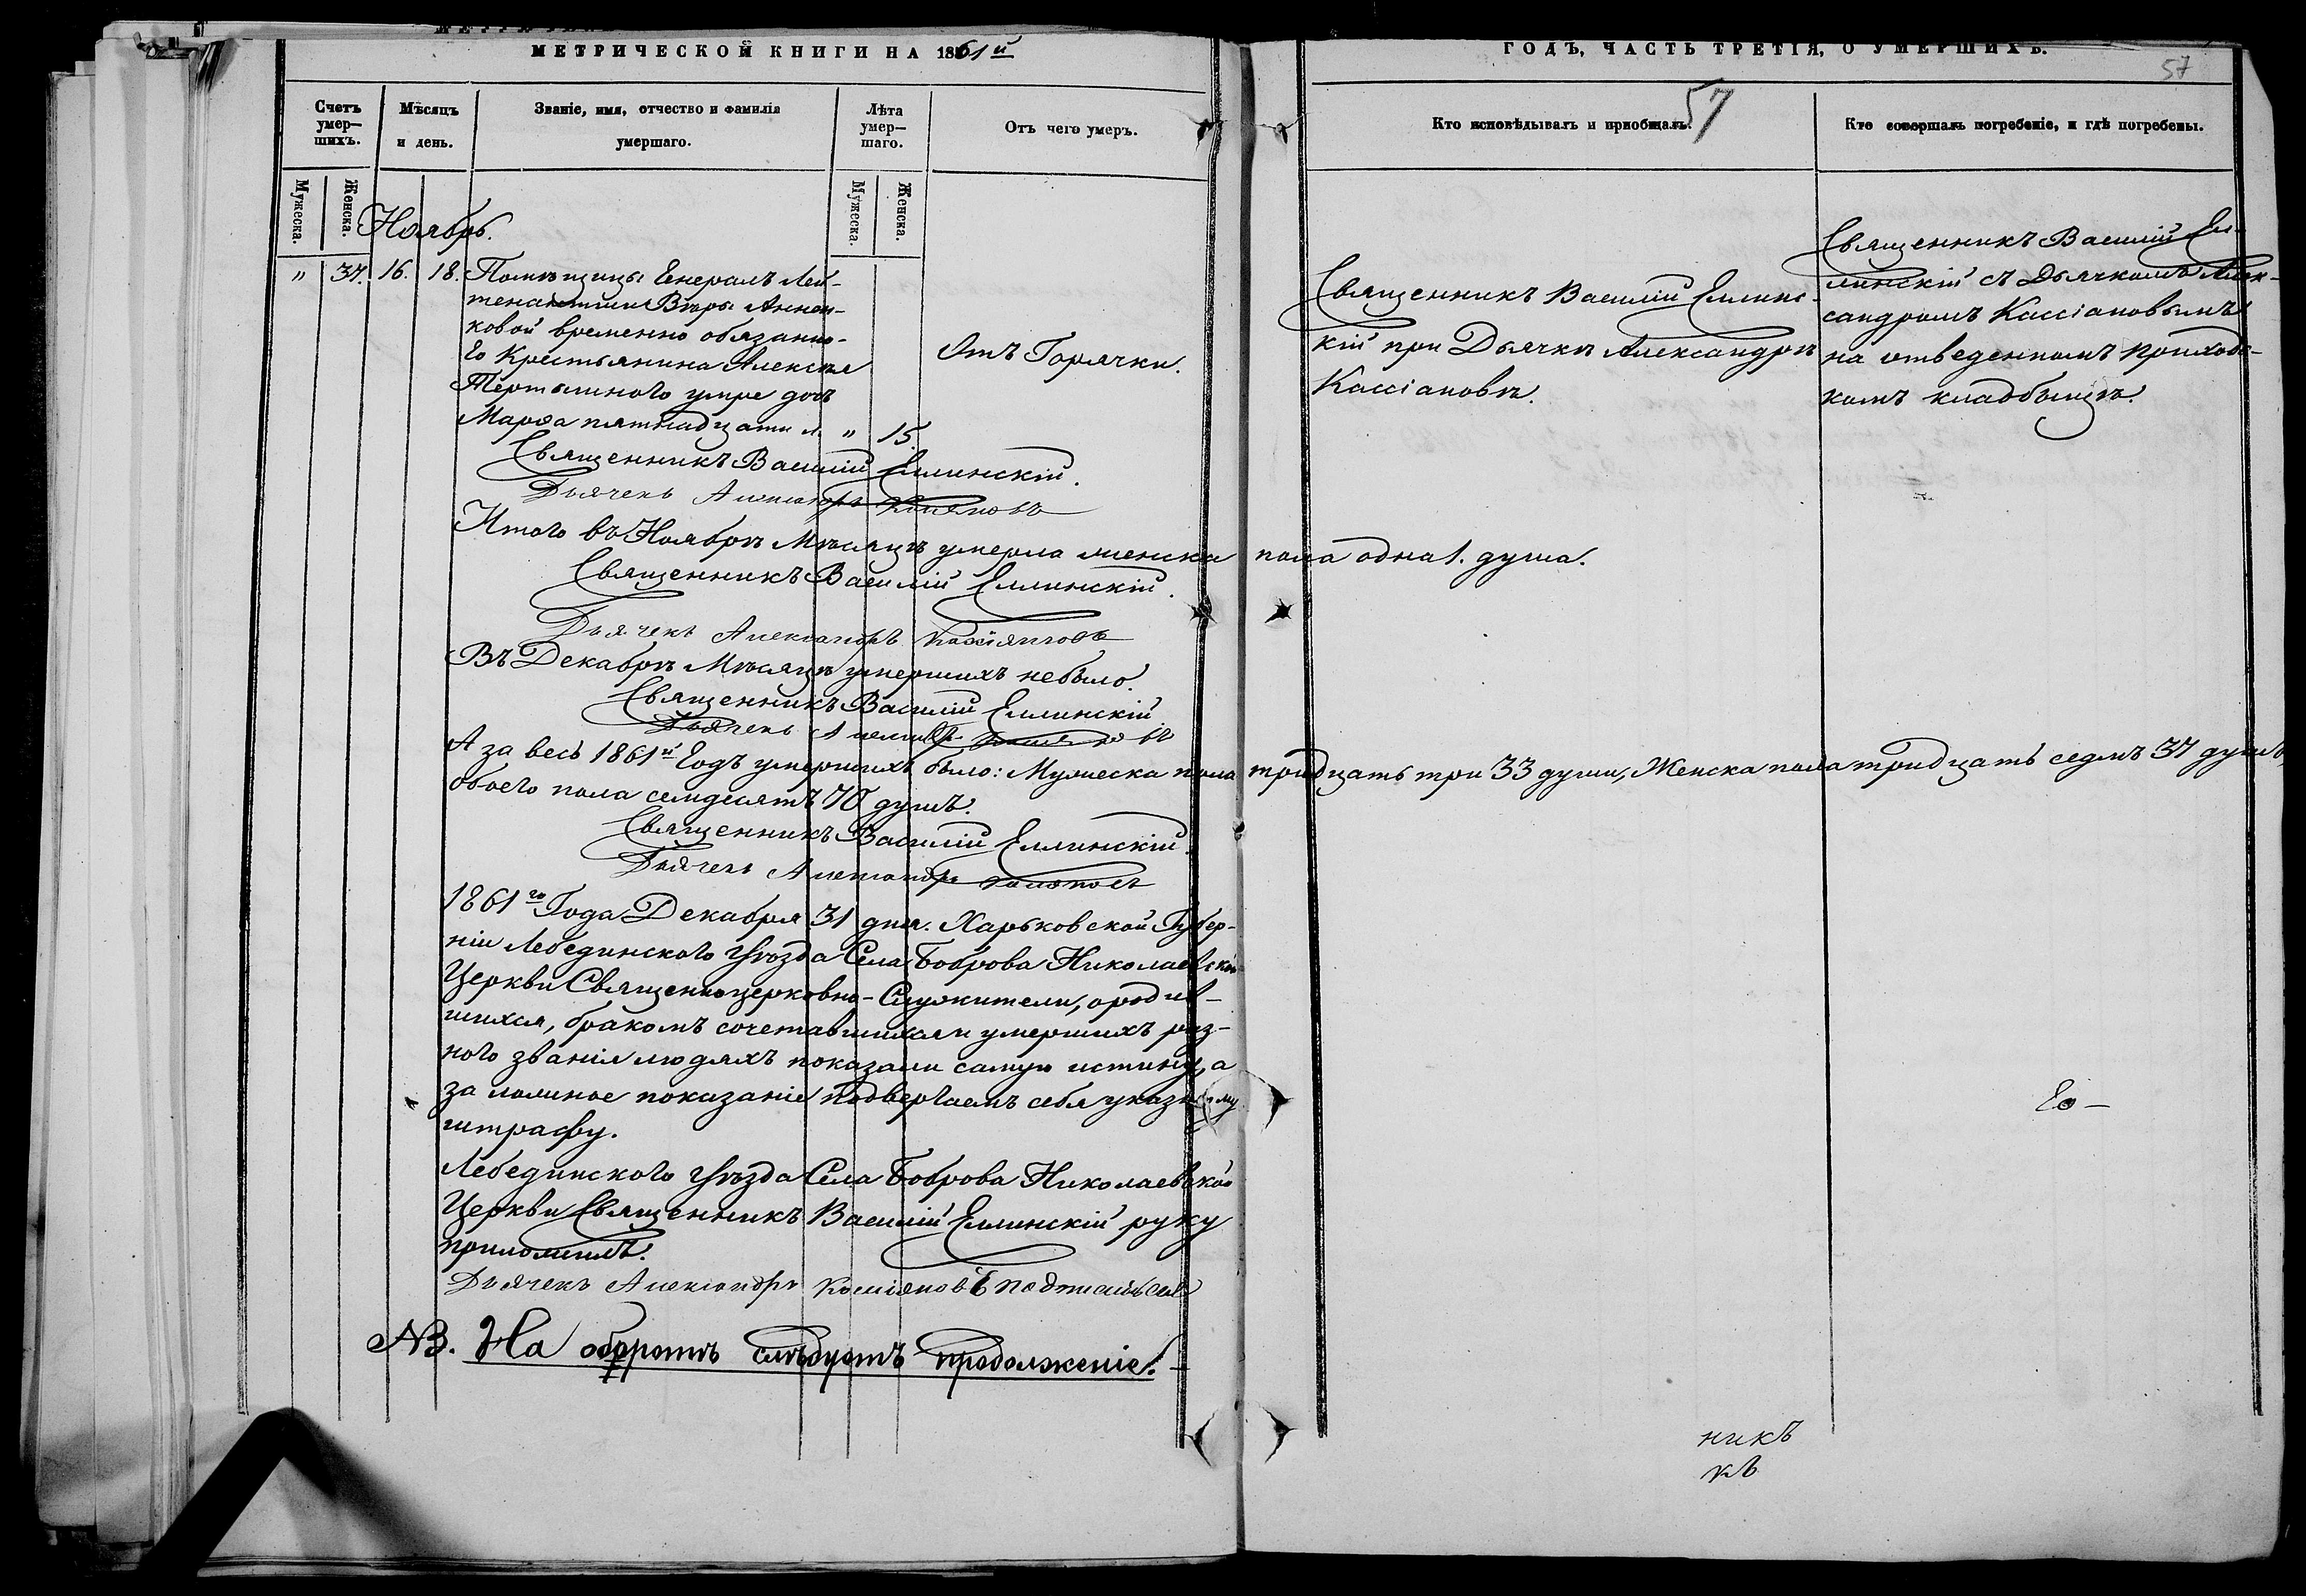 МЕТРИЧЕСКОЙ КНИГИ НА 1861й
ГОДЪ, ЧАСТЬ ТРЕТІЯ, О УМЕРШИХЪ.
57
57
Счетъ умер—шихъ.
Мѣсяцъ и день.
Званіе, имя, отчество и фамилія умершаго.
Лѣта умер—шаго.
Отъ чего умеръ.
Кто исповѣдывалъ и приобщалъ.
Кто совершалъ погребеніе, и гдѣ погребены.
Мужеска.
Женска.
Мужеска.
Женска.
Ноябрь.
" 37. 16. 18. Помѣщицы Генералъ Лей-
тенантши Вѣры Аннен-
ковой временно обязанно-
го Крестьянина Алексѣя
умре дочь
Марѳа пятнадцати л. " 15.
Отъ Горячки.
Священникъ Василій Еллинс-
кій при Дьячкѣ Александрѣ
Кассіановѣ.
Священникъ Василій Ел-
линскій съ Дьячкомъ Алек-
сандромъ Кассіановымъ
на отведенномъ приходс-
комъ кладбищѣ.
Священникъ Василій Еллинскій.
Дьячекъ Александръ Кассіановъ
Итого въ Ноябрѣ Мѣсяцѣ умерла женска пола одна 1. душа.
Священникъ Василій Еллинскій.
Дьячекъ Александръ Кассіановъ
Въ Декабрѣ Мѣсяцѣ умершихъ небыло.
Священникъ Василій Еллинскій
Дьячекъ Александръ Кассіановъ
А за весь 1861й Годъ умершихъ было: Мужеска пола тридцать три 33 души, Женска пола тридцать седмъ 37 душъ,
обоего пола семдесятъ 70 душъ.
Священникъ Василій Еллинскій.
Дьячекъ Александръ Кассіановъ
1861го Года Декабря 31 дня. Харьковской Губер-
ніи Лебединского Уѣзда Села Боброва Николаевской
Церкви Священноцерковно-Служители, о родив-
шихся, бракомъ сочетавшихся и умершихъ раз-
ного званія людяхъ показали самую истину, а
за ложное показаніе подвергаемъ себя указному
штрафу.
Лебединского Уѣзда Села Боброва Николаевской
Церкви Священникъ Василій Еллинскій руку
приложилъ.
Дьячекъ Александръ Кассіановъ подписался
NB. На оборотѣ слѣдуетъ продолженіе.
го —
никъ
къ